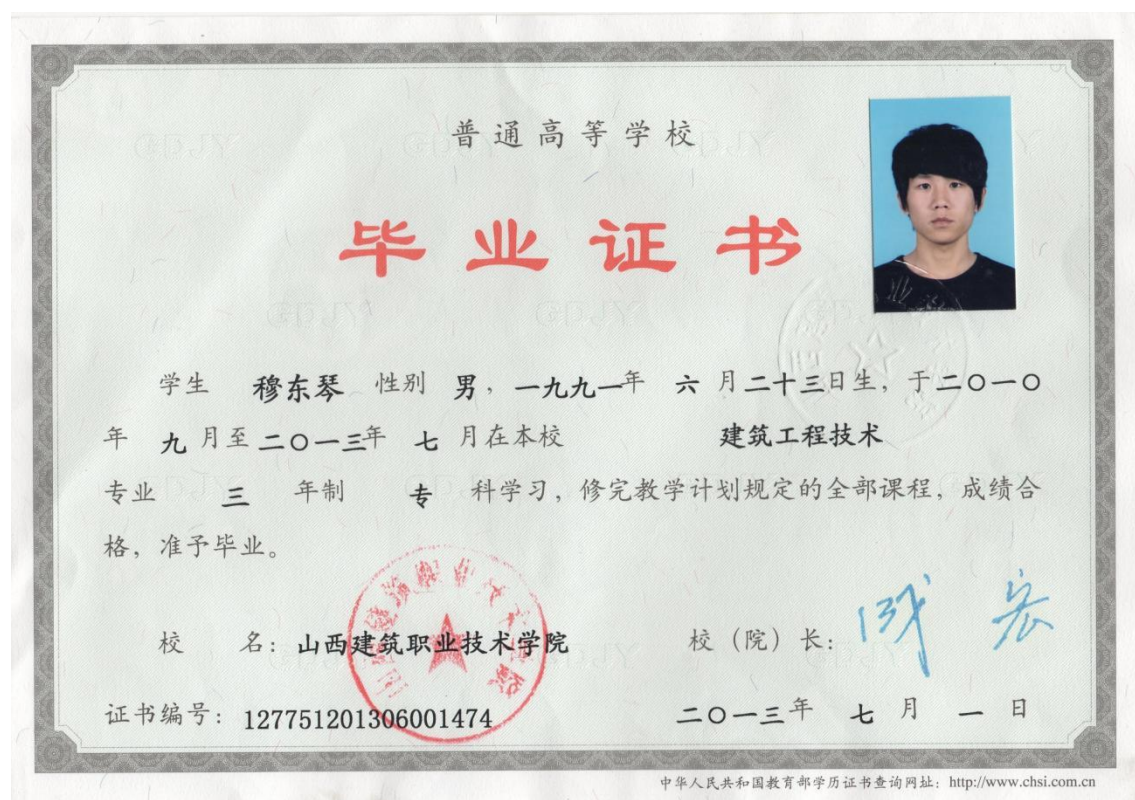 普通高等学校
毕业证书
学生 穆东琴 性别 男，一九九一年 六 月二十三日生，于二〇一〇
年 九 月至二〇一三年 七 月在本校 建筑工程技术
专业 三 年制 专 科学习，修完教学计划规定的全部课程，成绩合
格，准予毕业。
校 名：山西建筑职业技术学院 校（院）长：
证书编号：127751201306001474 二〇一三年 七 月 一 日
山西建筑职业技术学院
中华人民共和国教育部学历证书查询网址：http://www.chsi.com.cn